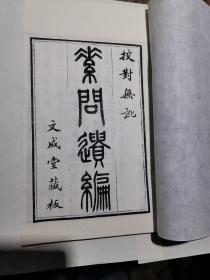 校對無訛
素問遺編
文成堂藏板